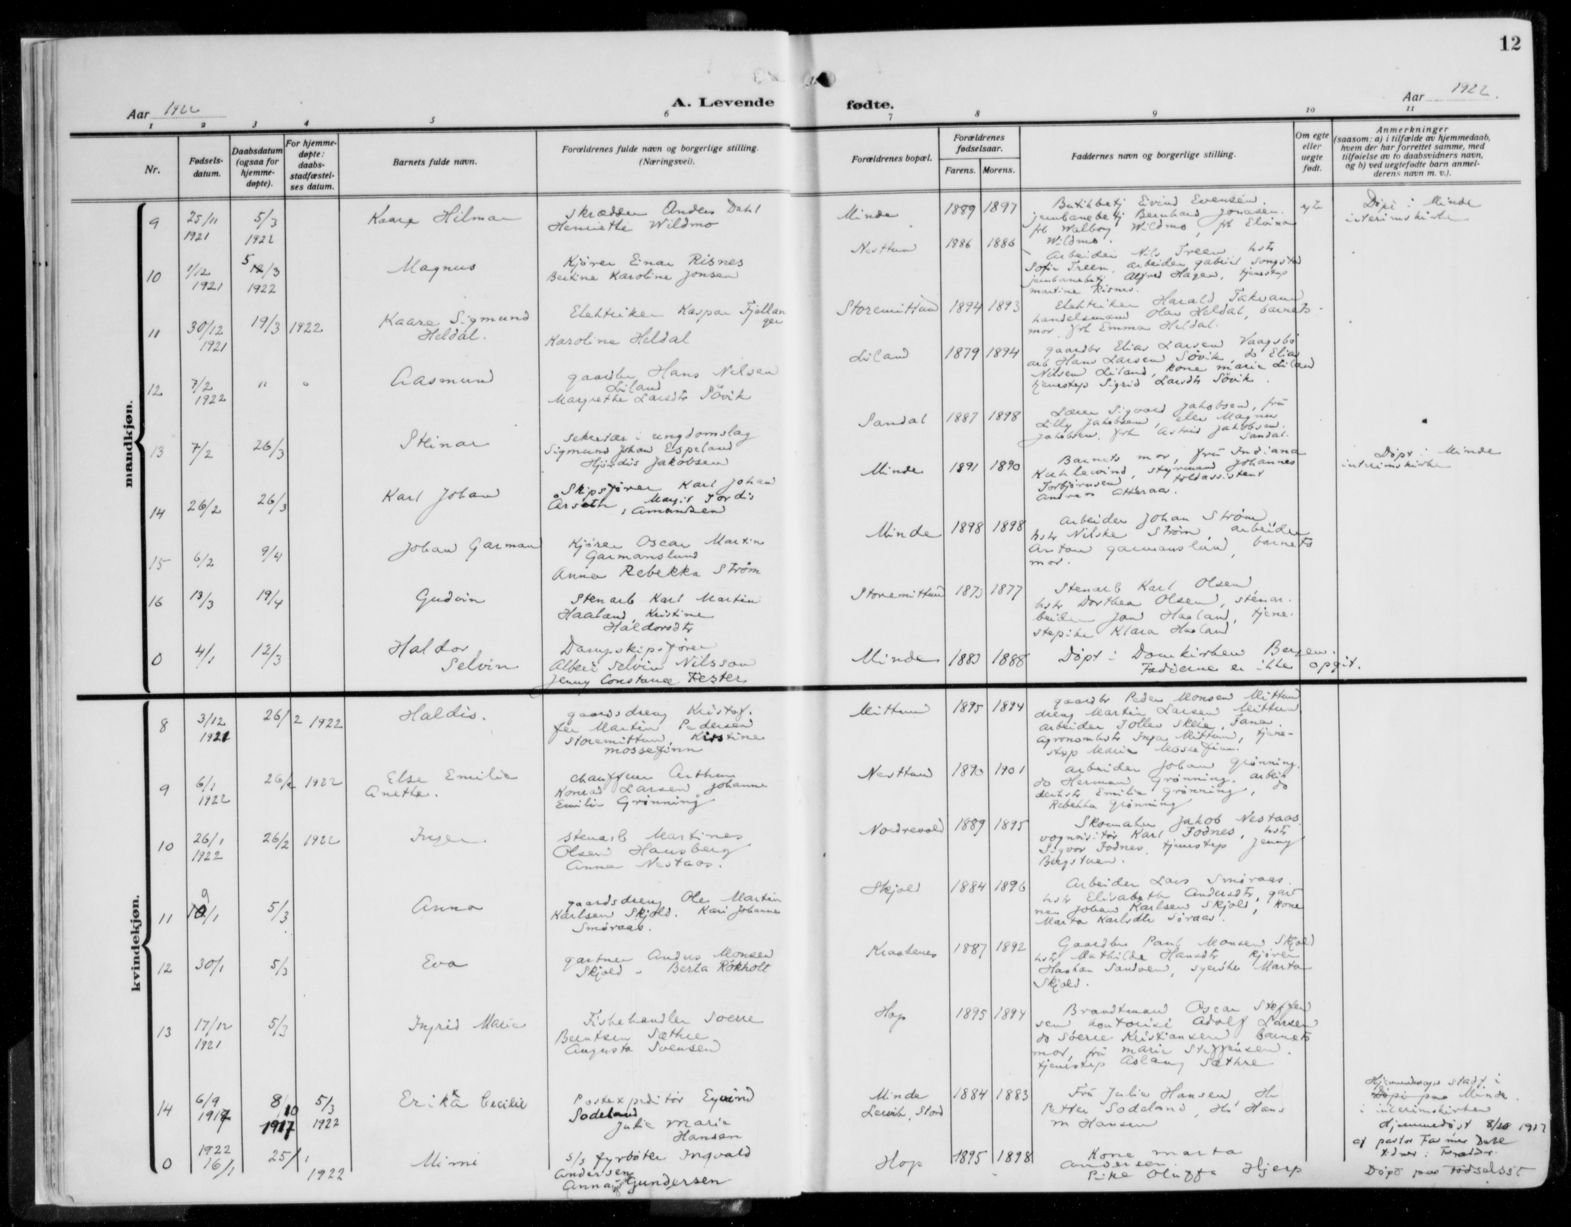 12
Aar 1922
A. Levende fødte.
Aar 1922.
1 2 3 4 5 6 7 8 9 10 11
Nr.
Fødsels-
datum.
Daabsdatum
(ogsaa for
hjemme-
døpte).
For hjemme-
døpte:
daabs-
stadfæstel-
ses datum.
Barnets fulde navn.
Forældrenes fulde navn og borgerlige stilling.
(Næringsvei).
Forældrenes bopæl.
Forældrenes
fødselsaar.
Farens. Morens.
Faddernes navn og borgerlige stilling.
Om egte
eller
uegte
født.
Anmerkninger
(saasom: a) i tilfælde av hjemmedaab,
hvem der har forrettet samme, med
tilføielse av to daabsvidners navn,
og b) ved uegtefødte barn anmel-
derens navn m. v.).
mandkjøn.
9 25/11 1921 5/3 1922 Kaare Hilmar
Skrædder Anders Dahl
Henriette Wildmo
Minde 1889 1897
Butikbetj Eivind Evensen.
jernbanebetj Bernhard Jonasen.
frk Walborg Wildmo, frk Elvina
Wildmo.
egte
Døpt i Minde
interimskirke
10 1/12 1921 5/3 1922 Magnus
Kjører Einar Risnes
Bertine Karoline Jonsen
Nesttun 1886 1886
Arbeider Nils Treen, hstr
Sofie Treen, arbeider Gabriel Songstad
jernbanebetj Alfred Hagen, tjenestep
Martine Risnes.
11 30/12 1921 19/3 1922 Kaare Sigmund
Heldal.
Elektriker Kaspar Fjellan
ger
Karoline Heldal
Storemittun 1894 1893
Elektriker Harald Takvam
handelsmand Hans Heldal, barnets
mor, frk Emma Heldal.
12 7/2 1922 " " Aasmund
gaardbr Hans Nilsen
Liland
Margrethe Larsdtr Søvik
Liland 1879 1894
gaardbr Elias Larsen Vaagsbø
arb Hans Larsen Søvik, do Elias
Nilsen Liland, kone Marie Liland
tjenestep Sigrid Larsdtr Søvik.
13 7/2 26/3 Steinar
Sekretær i ungdomslag
Sigmund Johan Espeland
Hjørdis Jakobsen
Sandal 1887 1898
Lærer Sigvard Jakobsen, fru
Lilly Jakobsen, elev Magnus
Jakobsen, frk Astrid Jakobsen.
Sandal.
14 26/2 26/3 Karl Johan
Skipsfører Karl Johan
Arseth, Margit Jordis
Amundsen
Minde 1891 1890
Barnets mor, fru Indiana
Kahlewind, styrmand Johannes
Torbjørnsen, toldassistent
Andreas Otteraas.
Døpt i Minde
interimskirke
15 6/2 9/4 Johan Garman
Kjører Oscar Martin
Garmanslund
Anna Rebekka Strøm
Minde 1898 1898
Arbeider Johan Strøm
hstr Nilske Strøm, arbeider
Anton Garmanslund, barnets
mor.
16 13/3 19/4 Gudvin
Stenarb Karl Martin
Haaland, Kristine
Haldorsdtr
Storemittun 1873 1877
Stenarb Karl Olsen
hstr Dorthea Olsen, stenar-
beider Jon Haaland, tjene-
stepike Klara Haaland
0 4/1 12/3 Haldor
Selvin
Dampskipsfører
Albert Selvin Nilsson
Jenny Constance Fester
Minde 1883 1888
Døpt i Domkirken Bergen.
Fadderne er ikke opgit.
kvindekjøn.
8 3/12 1921 26/2 1922 Haldis.
gaardsdreng Kristof-
fer Martin Pedersen
Storemittun, Kristine
Mossefinn
Mittun 1895 1894
gaardbr Peder Monsen Mittun
dreng Martin Larsen Mittun
arbeider Tollef Skeie, Fana.
Agronomhstr Inga Mittun, tjene-
step Marie Mossefinn.
9 6/1 1922 26/2 1922 Else Emilie
Anethe.
Chauffeur Arthur
Konrad Larsen, Johanne
Emilie Grønning
Nesttun 1890 1901
arbeider Johan Grønning.
do Herman Grønning, arbei-
derhstr Emilie Grønning, do
Rebekka Grønning
10 26/1 1922 26/2 1922 Inger.
Stenarb Martines
Olsen Hausberg
Anna Nestaas.
Nordrevold 1889 1895
Skomaker Jakob Nestaas
vognvisitør Karl Fodnes, hstr
Sigvor Fodnes, tjenestep Jenny
Bergstuen.
11 9/1 5/3 Anna
gaardsdreng Ole Martin
Karlsen Skjold. Kari Johannes
Smøraas.
Skjold 1884 1896
Arbeider Lars Smøraas.
hstr Elisabeth Andersdtr, gart
ner Johan Karlsen Skjold, kone
Marta Karlsdtr Søraas.
12 30/1 5/3 Eva
gartner Andr[?]s Monsen
Skjold - Berta Røkholt
Kraakenes 1887 1892
Gaardbr Paul Monsen Skjold
hstr Mathilde Hansdtr kjører
Haakon Sandven, syerske Marta
Skjold.
13 17/12 1921 5/3 Ingrid Marie
Fiskehandler Sverre
Berntsen Sæthre
Augusta Svensen
Hop 1895 1894
Brandtmand Oscar Steffen
sen kontorist Adolf Larsen
do Sverre Kristiansen barnets
mor, fru Marie Steffensen.
tjenestep Aslaug Sæthre
14 6/9 1917 8/10 1917 5/3 1922 Erika Cecilie
Postexpeditør Eyvind
Sodeland
Julie Marie
Hansen
Minde
Leirvik, Stord 1884 1883
Fru Julie Hansen, Hr
Petter Sodeland, Hr Hans
M Hansen
Hjemmedaap stadf. i
Døpt paa Minde.
i interimskirken
Hjemmedøpt 8/10 1917
af pastor Farner Dale
0 1922 16/1 25/1 1922 Mimi
S/s fyrbøter Ingvald
Andersen
Anna Gundersen
Hop 1895 1898
Kone Marta
Andersen.
Pike Oluffa Hjerp
Døpt paa Fødselsst